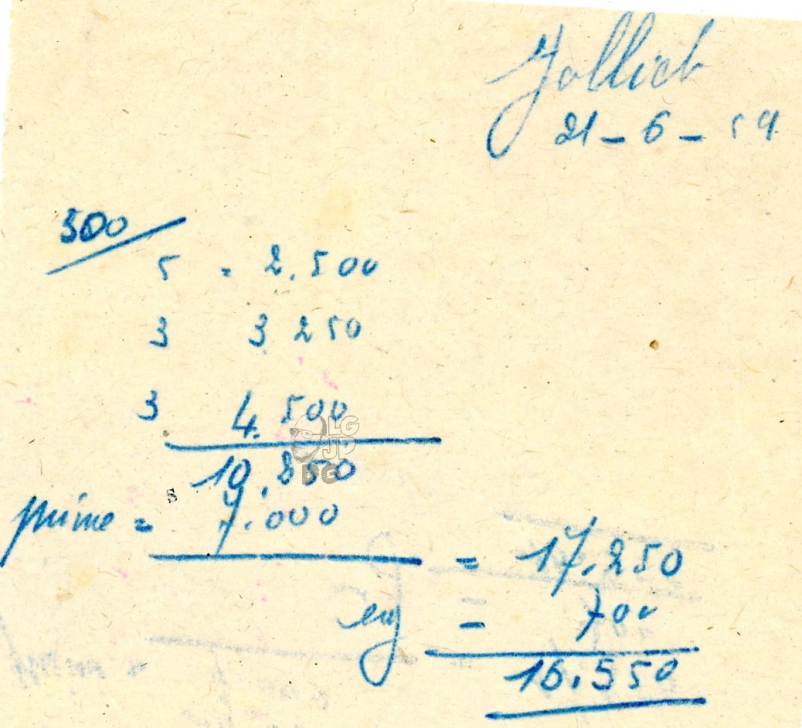 Jollick
21-6-54
500
5 = 2.500
3 3.250
3 4.500
10.250
prime = 7.000
= 17.250
- 700
16.550